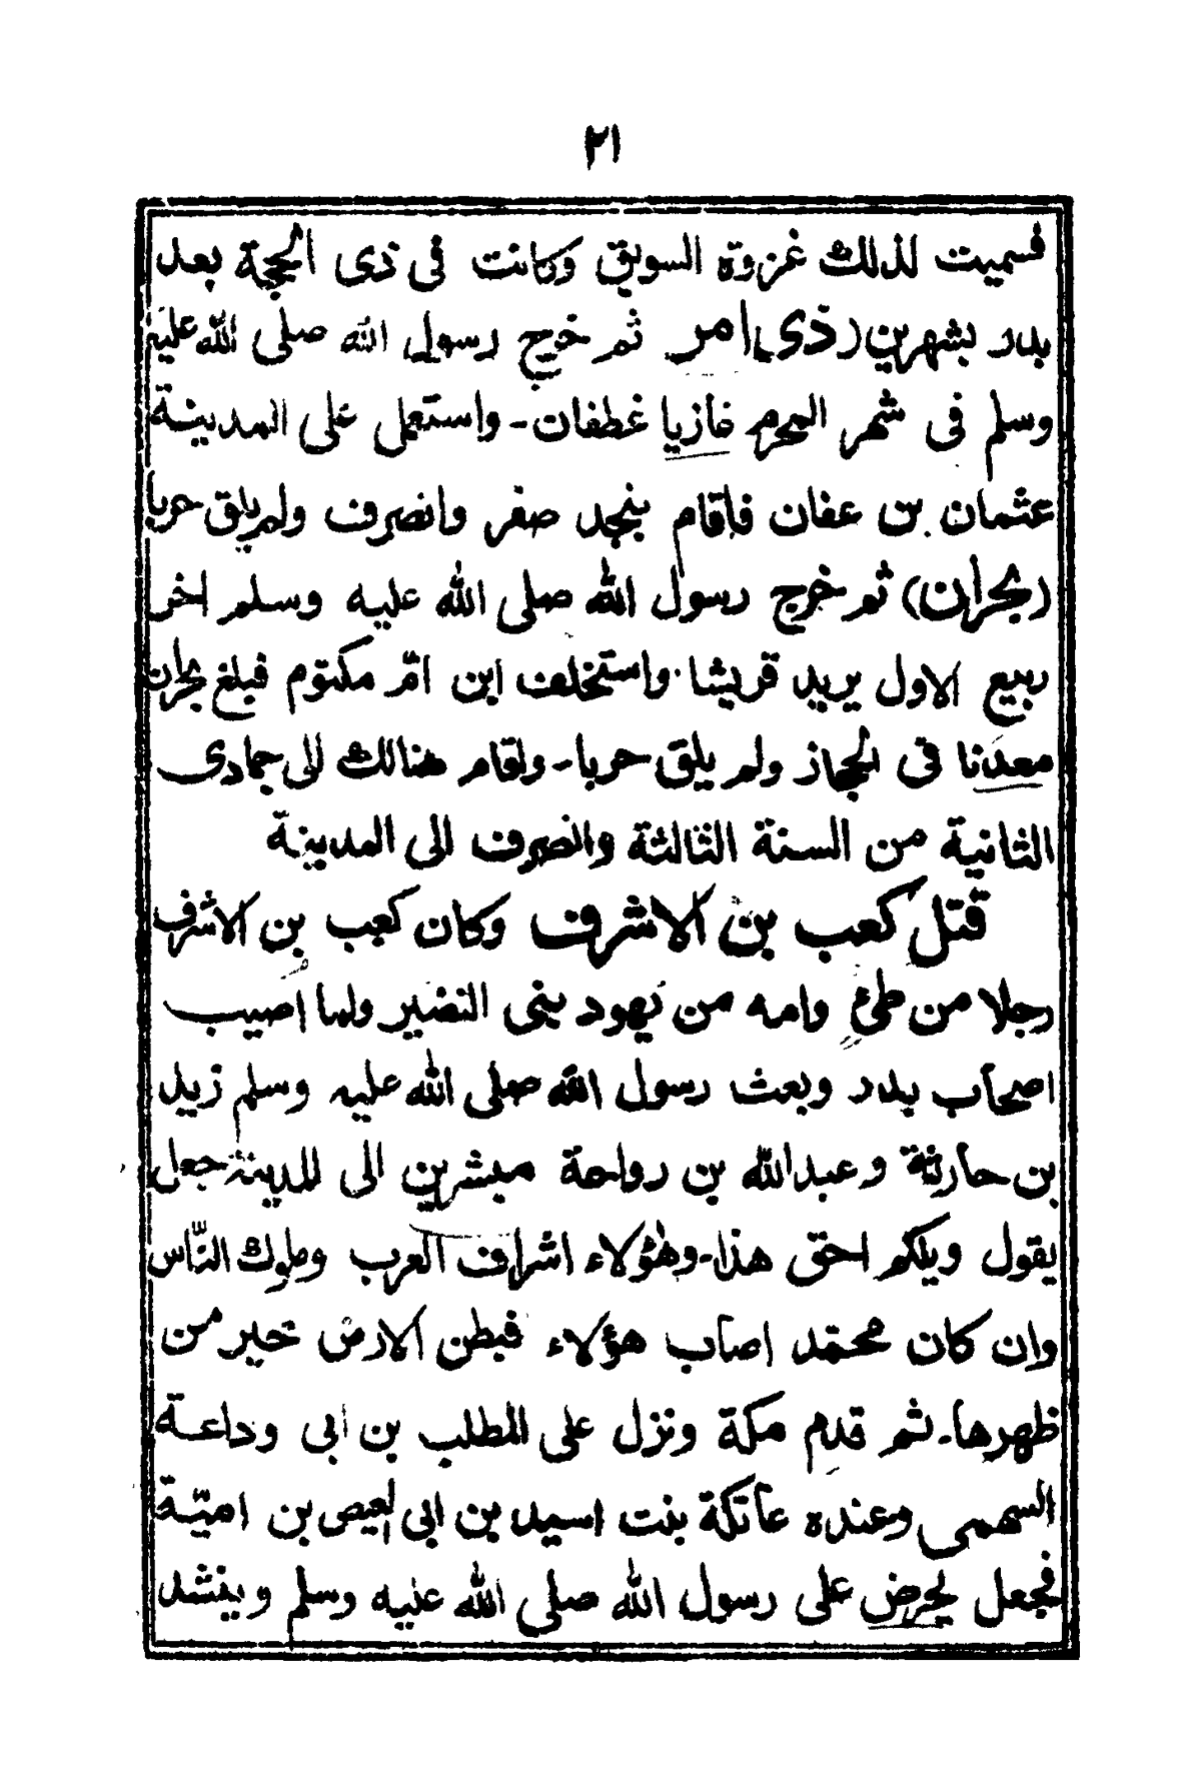 ٢١
فسميت لذلك غزوة السويق وكانت فى ذى الحجة بعد
بدر بشهرين (ذى امر ثم خرج رسول الله صلى الله عليه
وسلم فى شهر المحرم غازيا غطفان - واستعمل على المدينة
عثمان بن عفان فاقام بنجد صفر وانصرف ولم يلق حربا
(بحران) ثم خرج رسول الله صلى الله عليه وسلم اخر
ربيع الاول يريد قريشا واستخلف ابن امّ مكتوم فبلغ بحران
معدنا فى الحجاز ولم يلق حربا - واقام هنالك الى جمادى
الثانية من السنة الثالثة وانصرف الى المدينة
قتل كعب بن الاشرف وكان كعب بن الاشرف
رجلا من طئ وامه من يهود بنى النضير ولما اصيب
اصحاب بدر وبعث رسول الله صلى الله عليه وسلم زيد
بن حارثة وعبدالله بن رواحة مبشرين الى المدينة جعل
يقول ويلكم احق هذا - وهٰؤلاء اشراف العرب وملوك النّاس
وان كان محمّد اصاب هؤلاء فبطن الارض خير من
ظهرها - ثم قدم مكة ونزل على المطلب بن ابى وداعة
السهمى وعنده عاتكة بنت اسيد بن ابى العيص بن اميّة
فجعل يحرض على رسول الله صلى الله عليه وسلم وينشد